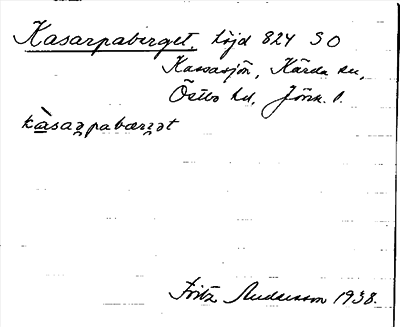 Kasarpaberget, höjd 824 SO
Kassasjön, Kärda sn,
Östbo hd, Jönk. l.
kàsarpabærgət
Fritz Andersson 1938.